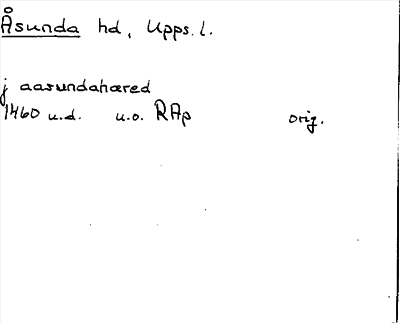 Åsunda hd, Upps. l.
j aasundahæred
1460 u.d. u.o. RAp orig.